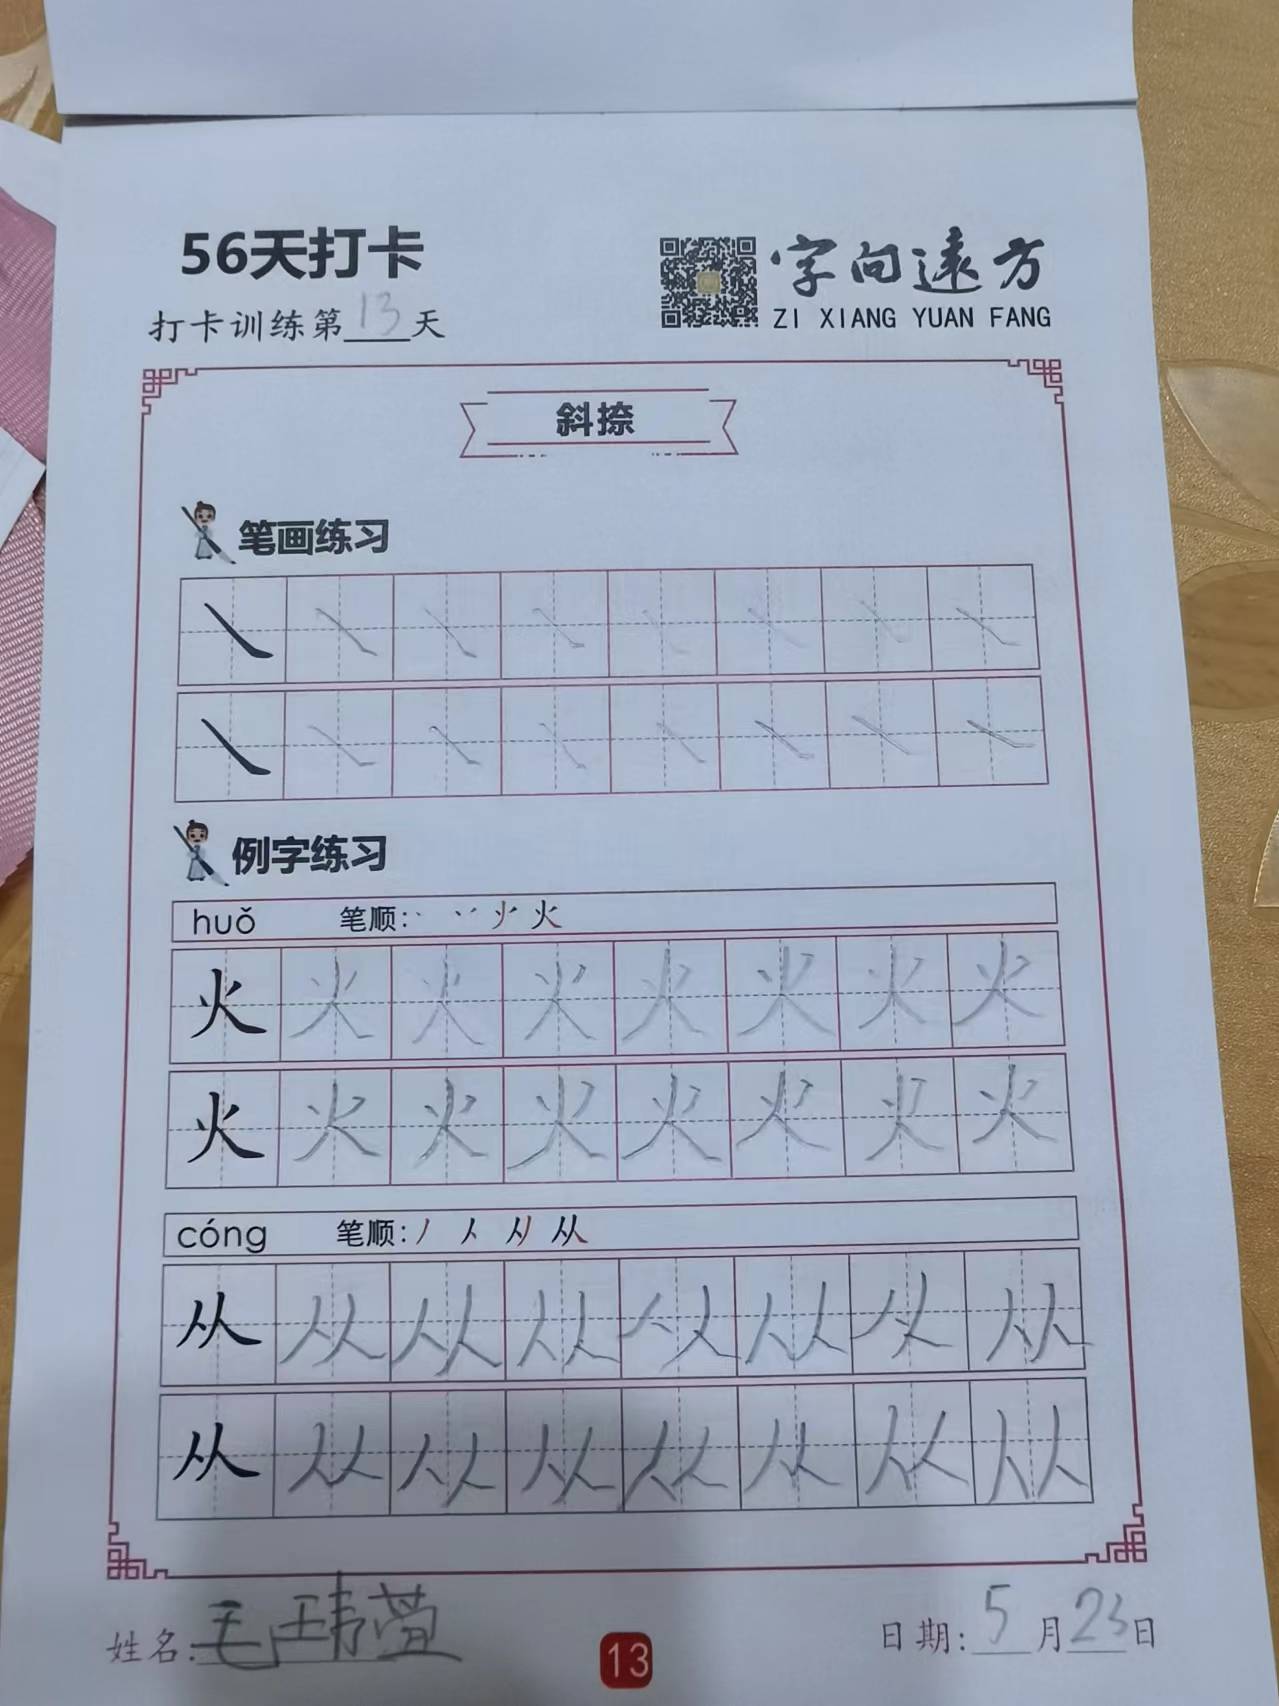 56天打卡
字向远方
打卡训练第13天
ZI XIANG YUAN FANG
斜捺
笔画练习
例字练习
huǒ 笔顺: 丶 丷 火
火 火 火 火 火 火 火 火
火 火 火 火 火 火 火 火
cóng 笔顺: 丿 人 从
从 从 从 从 从 从 从 从
从 从 从 从 从 从 从 从
姓名: 毛玮萱
日期: 5月23日
13